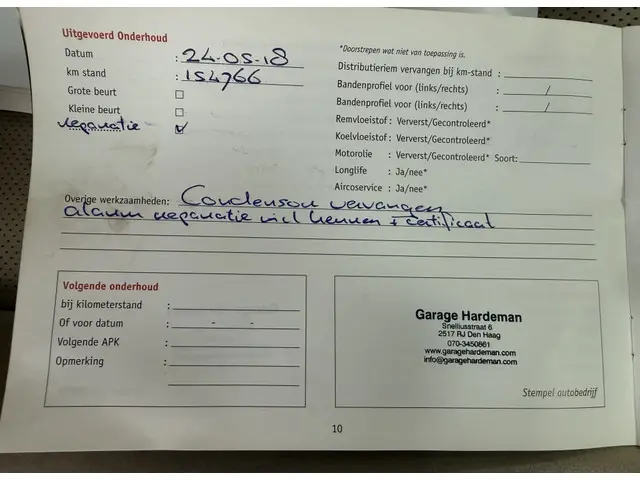 Uitgevoerd Onderhoud
Datum : 24-05-18
km stand : 154766
Grote beurt
Kleine beurt
reparatie
*Doorstrepen wat niet van toepassing is.
Distributieriem vervangen bij km-stand :
Bandenprofiel voor (links/rechts) : /
Bandenprofiel voor (links/rechts) : /
Remvloeistof : Ververst/Gecontroleerd*
Koelvloeistof : Ververst/Gecontroleerd*
Motorolie : Ververst/Gecontroleerd* Soort:
Longlife : Ja/nee*
Aircoservice : Ja/nee*
Overige werkzaamheden: Condensor vervangen
alarm reparatie incl + certificaat
Volgende onderhoud
bij kilometerstand :
Of voor datum : - -
Volgende APK :
Opmerking :
Garage Hardeman
Snelliusstraat 6
2517 RJ Den Haag
070-3450861
www.garagehardeman.com
info@garagehardeman.com
Stempel autobedrijf
10